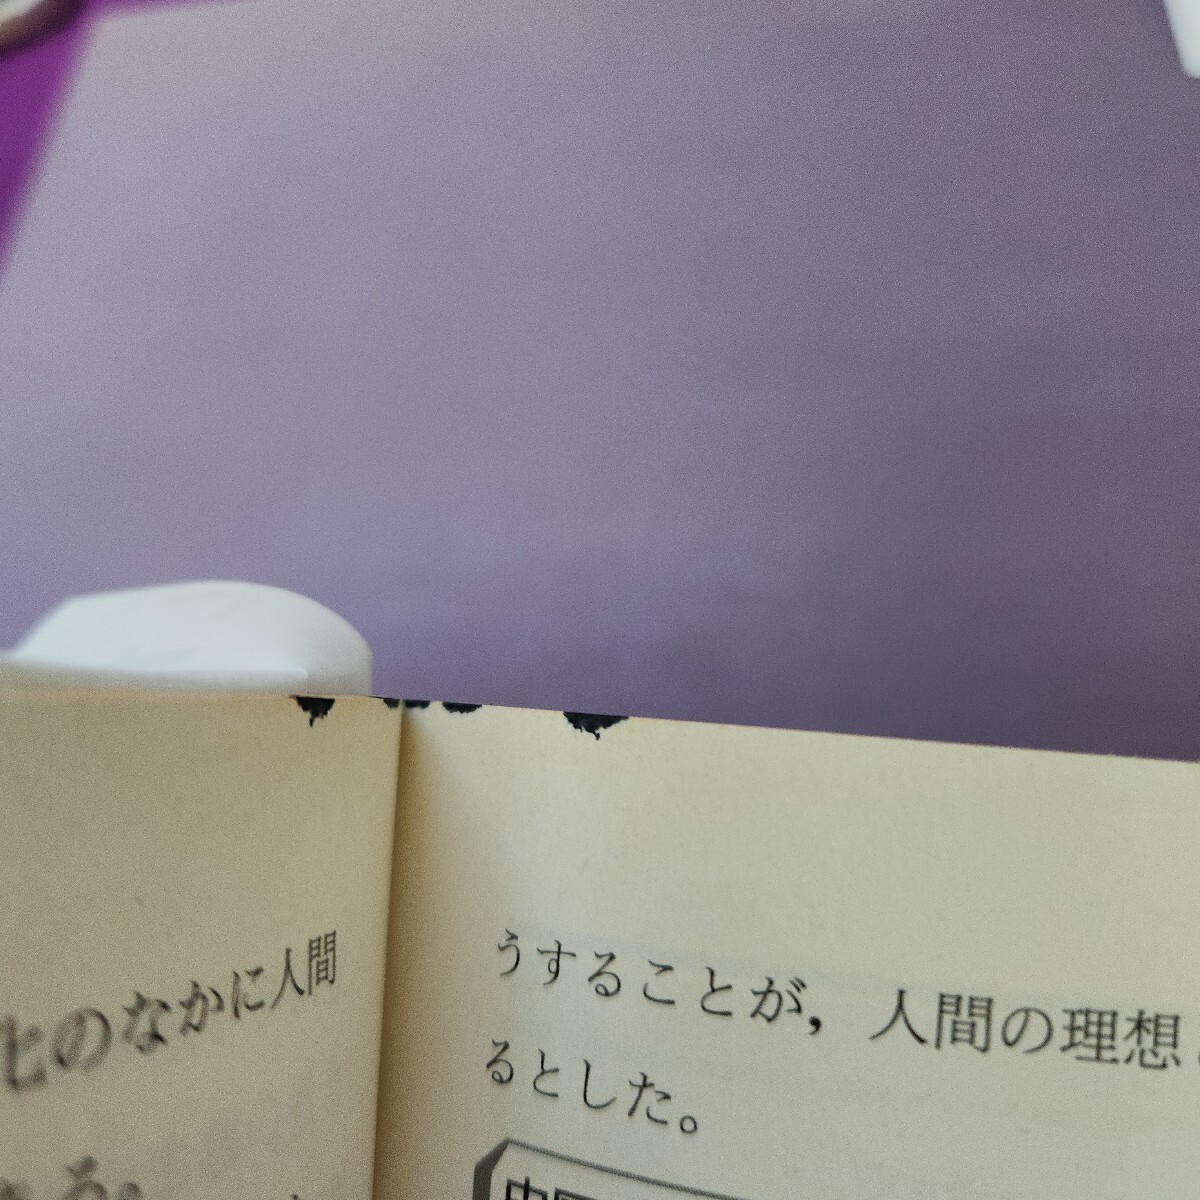 化のなかに人間
うすることが，人間の理想
るとした。